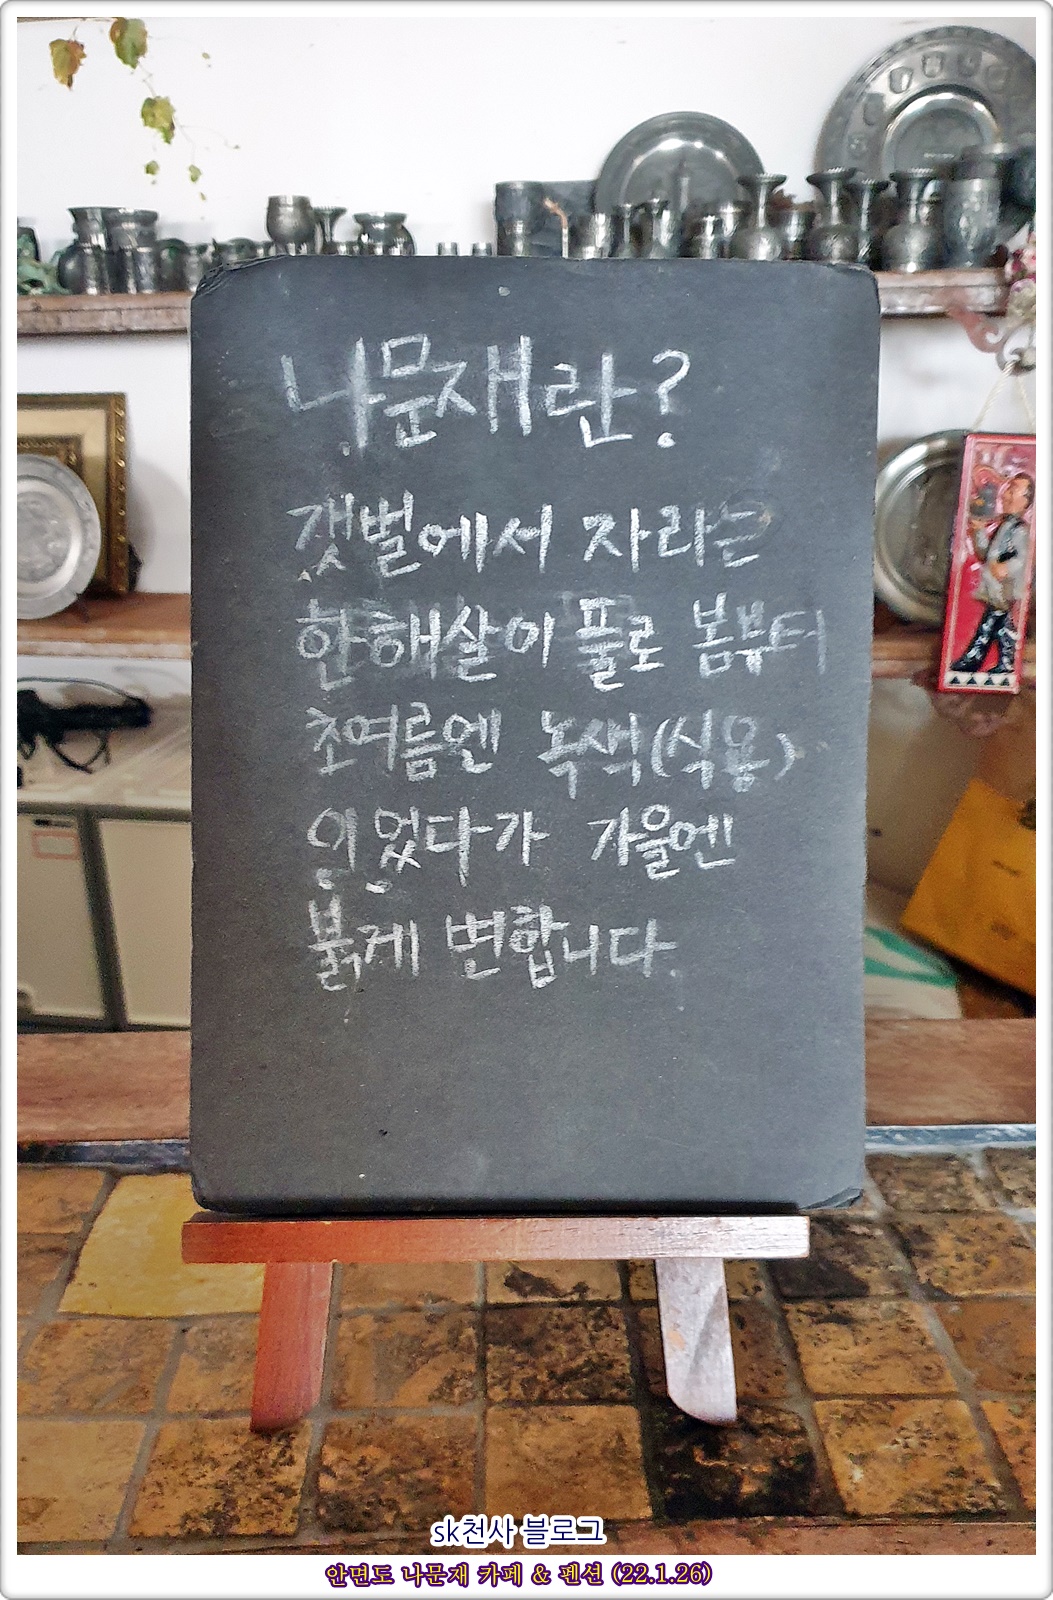 나문재란?
갯벌에서 자라는
한해살이 풀로 봄부터
초여름엔 녹색(식용)
이었다가 가을엔
붉게 변합니다.
sk천사 블로그
안면도 나문재 카페 & 펜션 (22.1.26)